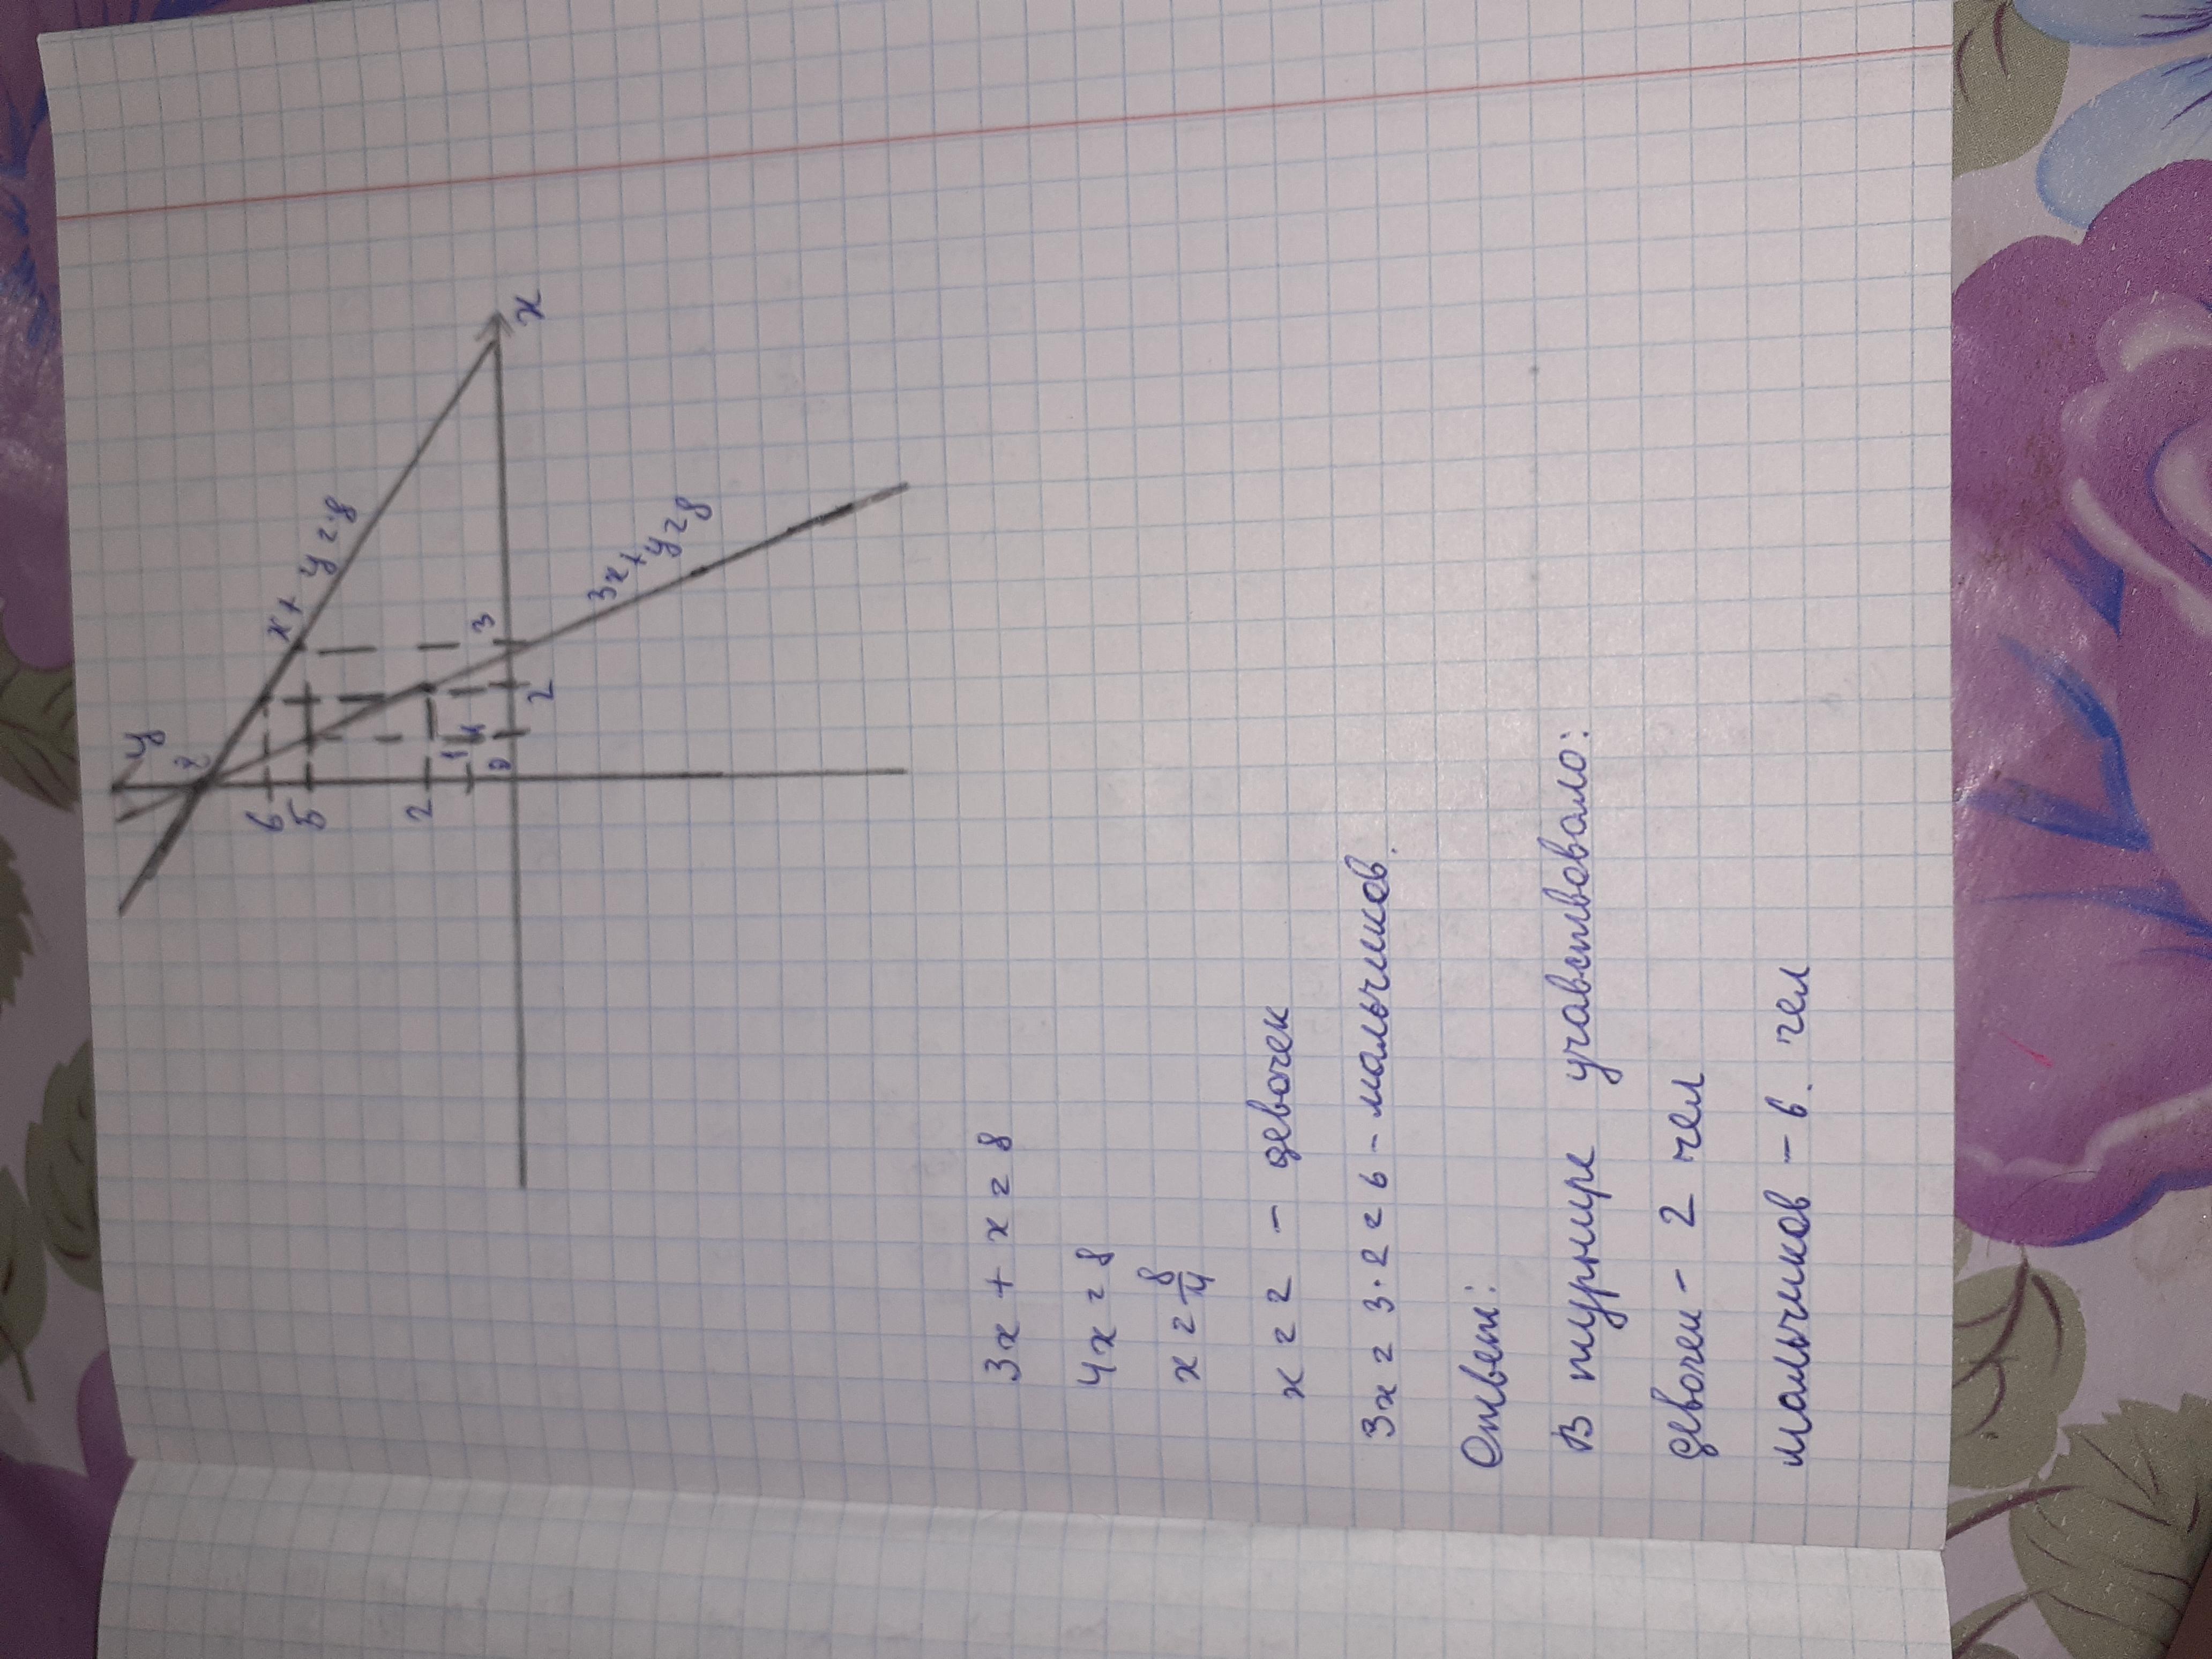 y
8
6
5
2
1
0
1
2
3
x
x + y = 8
3x + y = 8
3x + x = 8
4x = 8
x = 8/4
x = 2 - девочек
3x = 3·2 = 6 - мальчиков.
Ответ:
В турнире учавствовало:
девочек - 2 чел
мальчиков - 6. чел